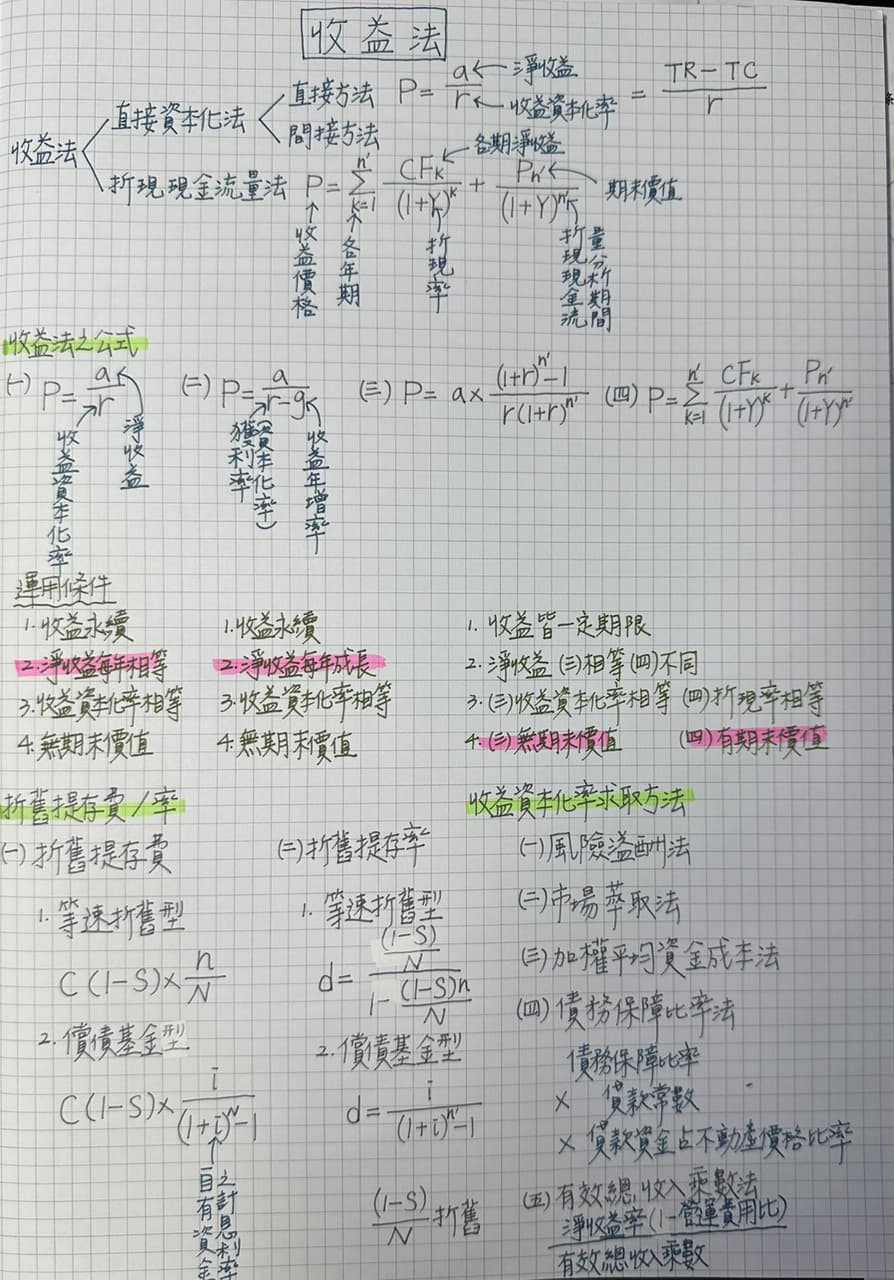 收益法
收益法
直接資本化法
直接方法
間接方法
P = a/r = (TR－TC)/r
淨收益
收益資本化率
折現現金流量法
P = Σ(k=1→n') CFk/(1+Y)^k + Pn'/(1+Y)^n'
各期淨收益
期末價值
收益價格
各年期
折現率
折現現金流
量分析期間
收益法之公式
(一) P = a/r
收益資本化率
淨收益
(二) P = a/(r-g)
獲利率
(資本化率)
收益年增率
(三) P = a × ((1+r)^n' -1)/(r(1+r)^n')
(四) P = Σ(k=1→n') CFk/(1+Y)^k + Pn'/(1+Y)^n'
運用條件
1. 收益永續
2. 淨收益每年相等
3. 收益資本化率相等
4. 無期末價值
1. 收益永續
2. 淨收益每年成長
3. 收益資本化率相等
4. 無期末價值
1. 收益皆一定期限
2. 淨收益 (三)相等 (四)不同
3. (三)收益資本化率相等 (四)折現率相等
4. (三)無期末價值 (四)有期末價值
折舊提存費/率
(一) 折舊提存費
1. 等速折舊型
C(1-S) × n/N
2. 償債基金型
C(1-S) × i/((1+i)^n' -1)
自有資金
之計息利率
(二) 折舊提存率
1. 等速折舊型
d = ((1-S)/N)/(1-(1-S)n/N)
2. 償債基金型
d = i/((1+i)^n' -1)
(1-S)/N 折舊
收益資本化率求取方法
(一) 風險溢酬法
(二) 市場萃取法
(三) 加權平均資金成本法
(四) 債務保障比率法
債務保障比率
× 貸款常數
× 貸款資金占不動產價格比率
(五) 有效總收入乘數法
淨收益率(1-營運費用比)
有效總收入乘數